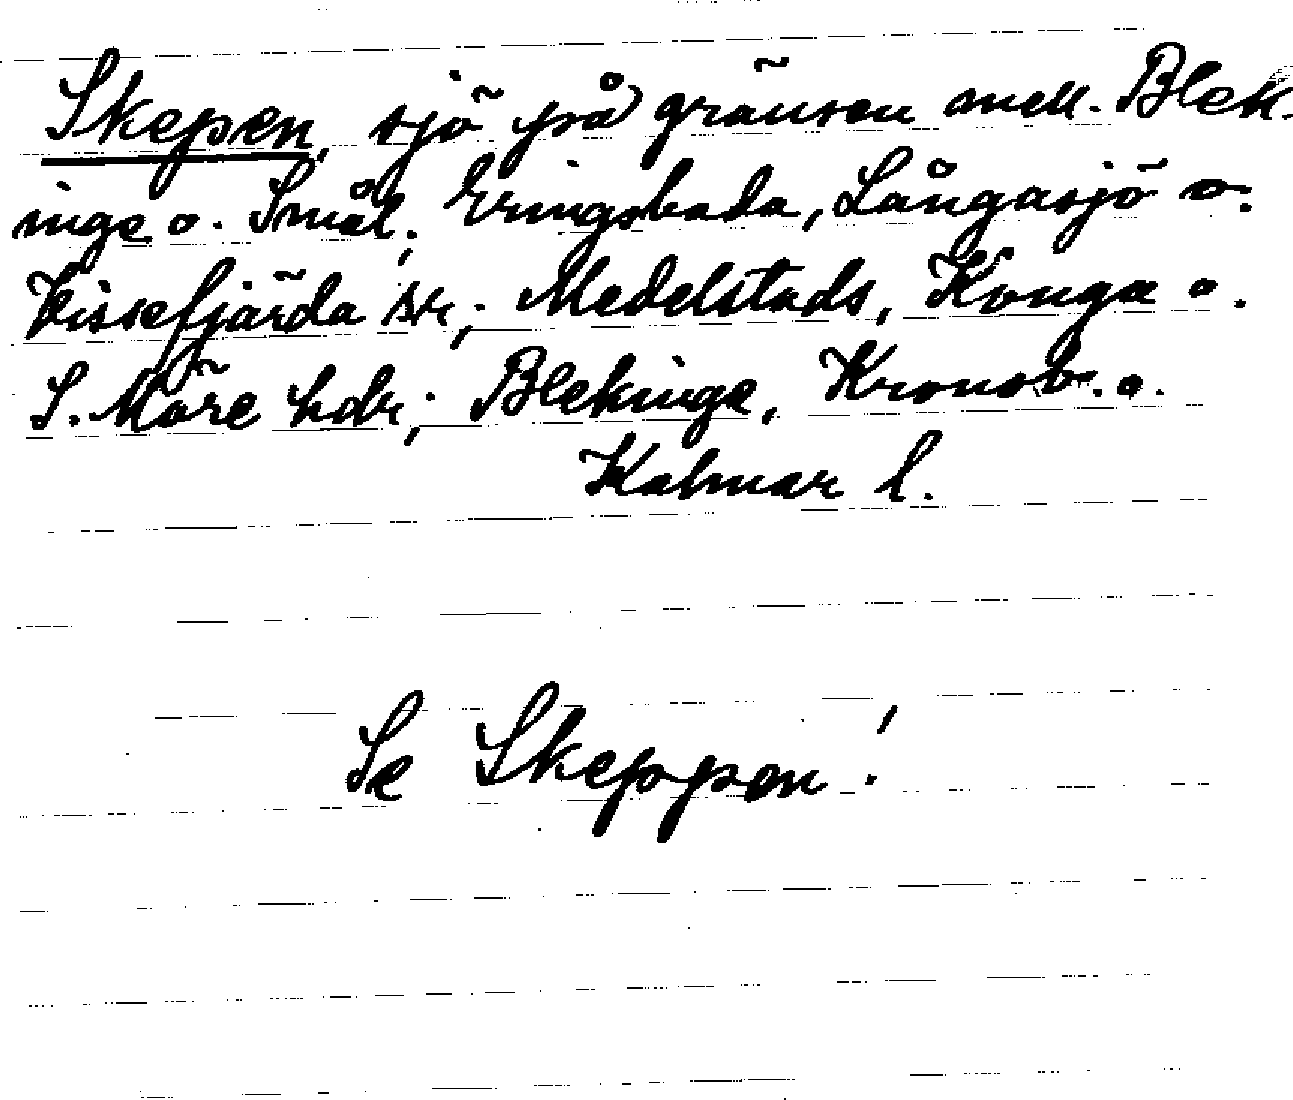 Skepen, sjö på gränsen mell. Blek-
inge o. Smål.; Eringsboda, Långasjö o.
Vissefjärda snr; Medelstads, Konga o.
S. Möre hdr; Blekinge, Kronob. o.
Kalmar l.
Se Skeppen!